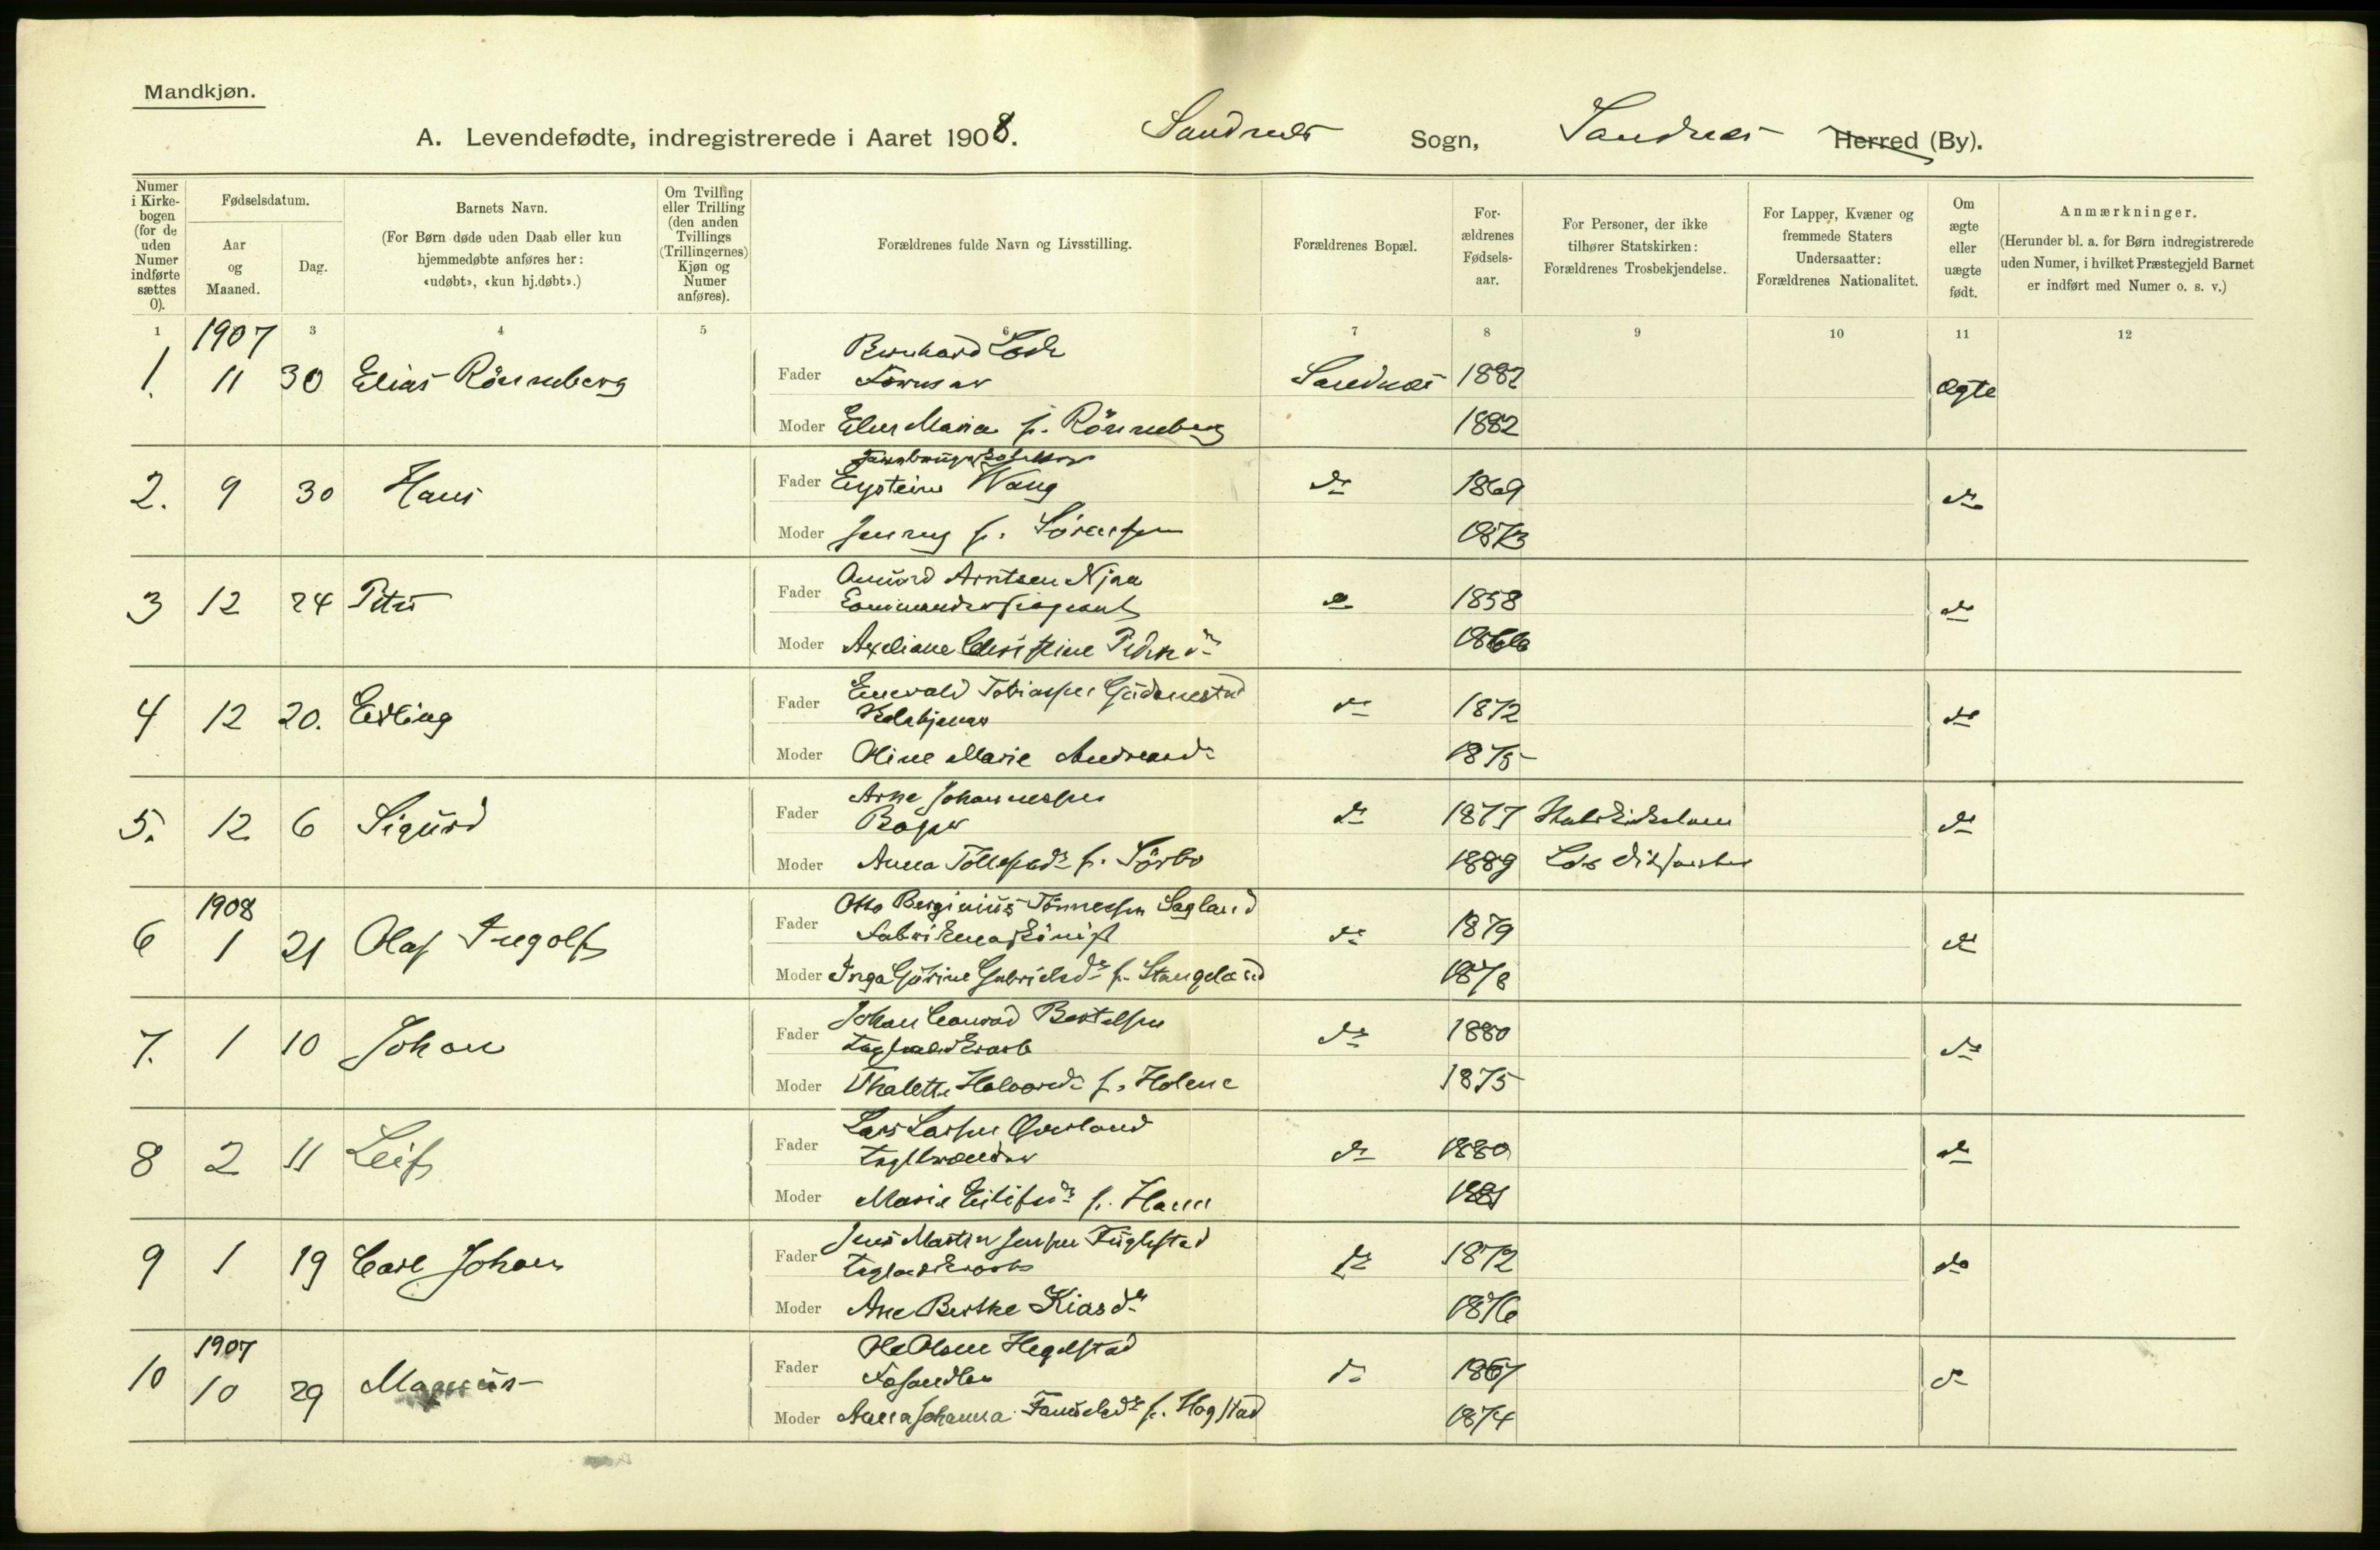 Mandkjøn.
A. Levendefødte, indregistrerede i Aaret 1908. Sandnes Sogn, Sandnes Herred (By).
Numer i Kirkebogen (for de uden Numer indførte sættes 0).
Fødselsdatum.
Aar og Maaned.
Dag.
Barnets Navn.
(For Børn døde uden Daab eller kun hjemmedøbte anføres her: «udøbt», «kun hj.døbt».)
Om Tvilling eller Trilling (den anden Tvillings (Trillingernes) Kjøn og Numer anføres).
Forældrenes fulde Navn og Livsstilling.
Forældrenes Bopæl.
Forældrenes Fødselsaar.
For Personer, der ikke tilhører Statskirken: Forældrenes Trosbekjendelse.
For Lapper, Kvæner og fremmede Staters Undersaatter: Forældrenes Nationalitet.
Om ægte eller uægte født.
Anmærkninger.
(Herunder bl. a. for Børn indregistrerede uden Numer, i hvilket Præstegjeld Barnet er indført med Numer o. s. v.)
1 3 4 5 6 7 8 9 10 11 12
1907
1. 11 30 Elias Rönneberg Fader Bernhard Formar Sandnes 1882 ægte
Moder Maria f. Rönneberg 1882
2. 9 30 Hans Fader Eystein Wang do 1869 do
Moder Jenny f. Sörensen 1873
3 12 24 Fader Arntsen Njaa do 1858 do
Moder Axeliane Christine 1866
4 12 20. Erling Fader Enevald Tobiassen do 1872 do
Moder Oline Marie 1875
5. 12 6 Sigurd Fader Arne Johannessen do 1877 do
Moder Anna f. Sörbo 1889
1908
6 1 21 Olaf Ingolf Fader Otto Tönnessen Sagland do 1879 do
Moder Inga Gabrielsdr f. Stangeland 1878
7. 1 10 Johan Fader Johan Conrad Bertelsen do 1880 do
Moder Thalette f. Holene 1875
8 2 11 Leif Fader Lars Larsen do 1880 do
Moder Marie f. Hann 1881
9 1 19 Carl Johan Fader Jens Martin Jensen Fuglestad do 1872 do
Moder Ane Berthe 1876
1907
10 10 29 Magnus Fader Ole Olsen Hegelstad do 1867 do
Moder Anna Johanna f. Hogstad 1874